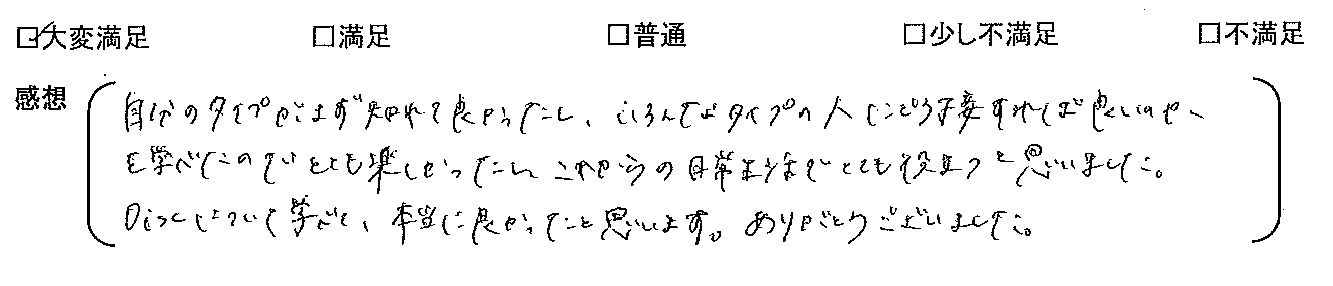 ☑大変満足 □満足 □普通 □少し不満足 □不満足
感想
自分のタイプがまず知れて良かったし、いろんなタイプの人にどう接すれば良いのか、
も学べたのでとても楽しかったし、これからの日常生活でとても役立つと思いました。
Discについて学べて、本当に良かったと思います。ありがとうございました。